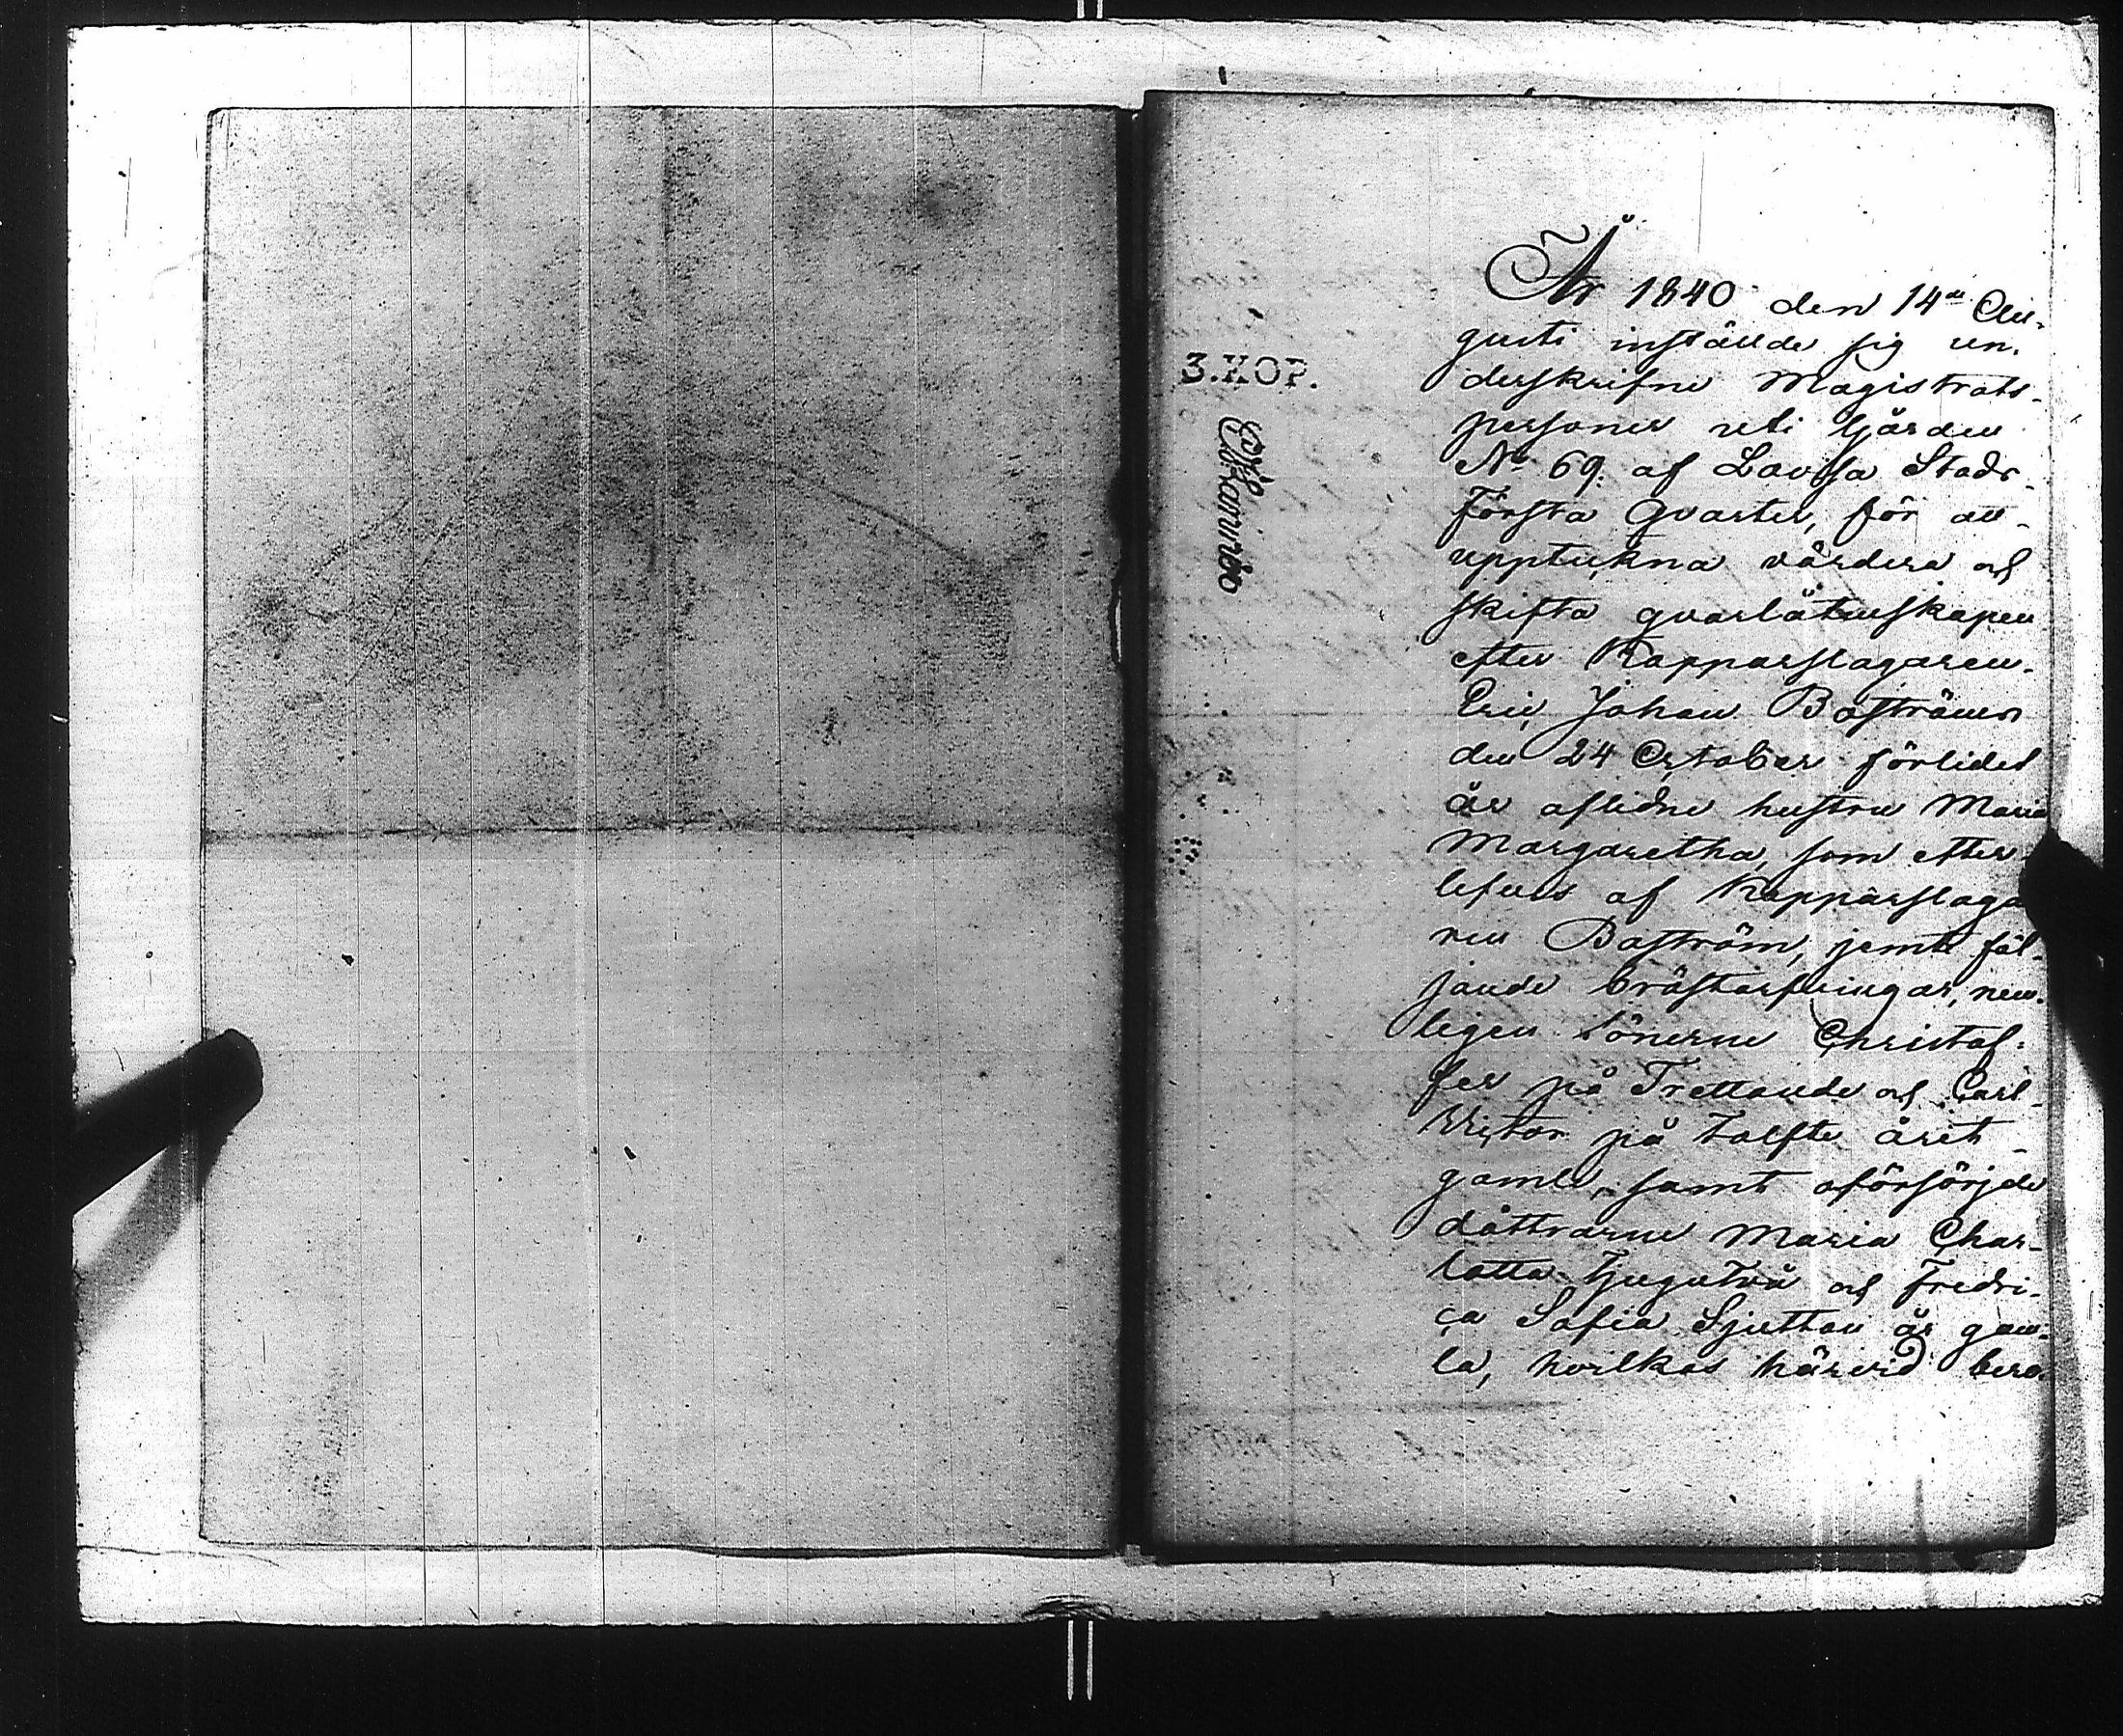 3. KOP.
År 1840 den 14de Au-
gusti instälde sig un-
derskrifne Magistrats-
personer uti Gården
No 69. af Lovisa Stads
Första Qvarter, för att
upptekna värdera och
skifta qvarlåtenskapen
efter Kopparslagaren
Eric Johan Boströms
den 24 October förlidet
år aflidne hustru Maria
Margaretha, som efter-
lefves af Kopparslaga-
ren Boström, jemte föl-
jande bröstarfvingar, nem-
ligen Sönerne Christof-
fer på Trettonde och Carl
Victor på tolfte året
gamle, samt oförsörjde
döttrarne Maria Char-
lotta Tjugutvå och Fredri-
ca Sofia Sjutton år gam-
la, hvilkas härvid bera-